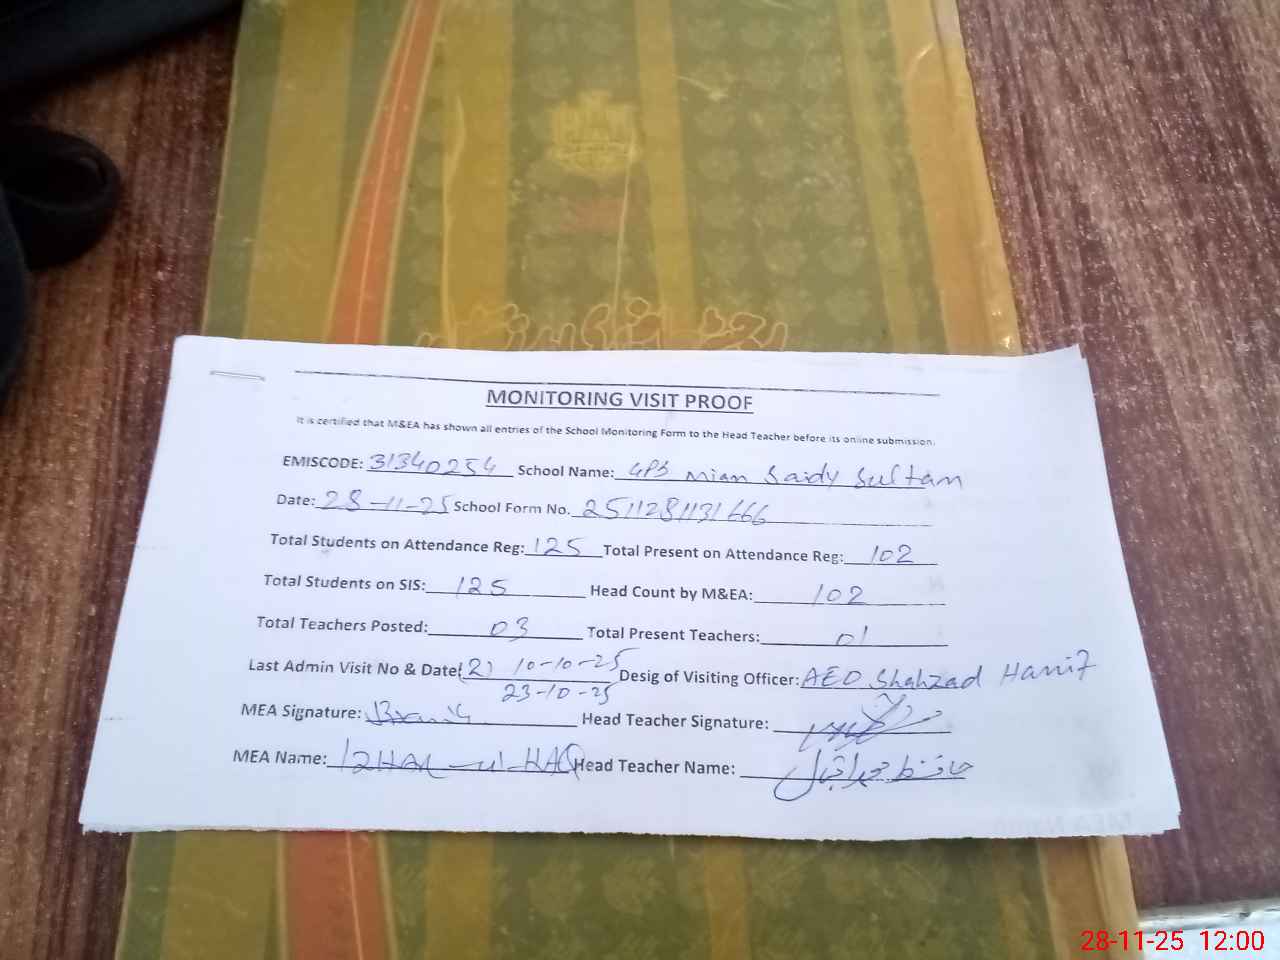 MONITORING VISIT PROOF
It is certified that M&EA has shown all entries of the School Monitoring Form to the Head Teacher before its online submission.
EMISCODE: 31340254 School Name: GPS Mian Saidy Sultan
Date: 28-11-25 School Form No. 2511281131666
Total Students on Attendance Reg: 125 Total Present on Attendance Reg: 102
Total Students on SIS: 125 Head Count by M&EA: 102
Total Teachers Posted: 03 Total Present Teachers: 01
Last Admin Visit No & Date: (2) 10-10-25 Desig of Visiting Officer: AEO Shahzad Hanif
23-10-25
MEA Signature: Head Teacher Signature:
MEA Name: IZHAR-ul-HAQ Head Teacher Name: حافظ
28-11-25 12:00